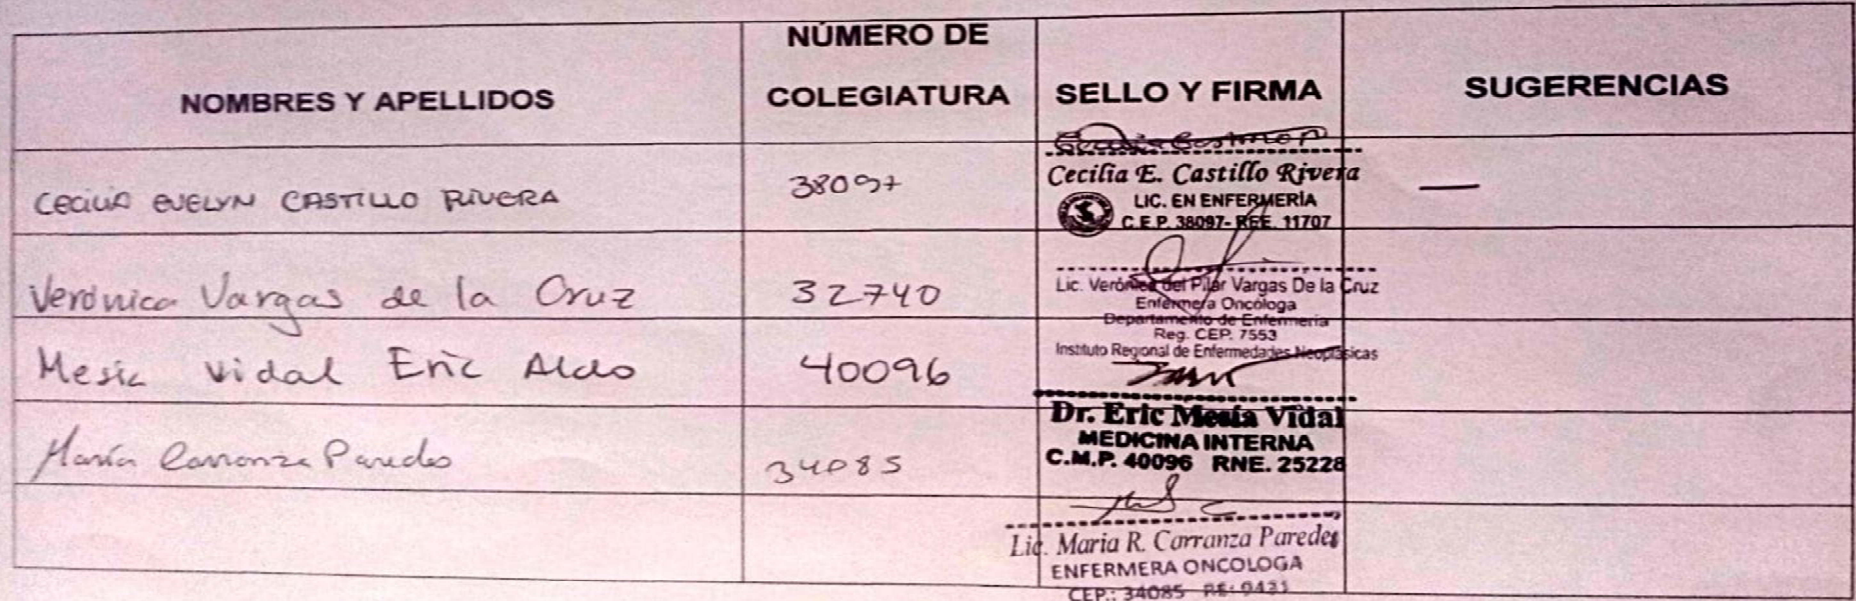 NOMBRES Y APELLIDOS
NÚMERO DE
COLEGIATURA
SELLO Y FIRMA
SUGERENCIAS
CECILIA EVELYN CASTILLO RIVERA
38097
Cecilia E. Castillo Rivera
LIC. EN ENFERMERÍA
C.E.P. 38097- REE. 11707
—
Verónica Vargas de la Cruz
32740
Lic. Verónica del Pilar Vargas De la Cruz
Enfermera Oncóloga
Departamento de Enfermería
Reg. CEP. 7553
Instituto Regional de Enfermedades Neoplásicas
Mesía Vidal Eric Aldo
40096
Dr. Eric Mesía Vidal
MEDICINA INTERNA
C.M.P. 40096 RNE. 25228
María Carranza Paredes
34085
Lic. Maria R. Carranza Paredes
ENFERMERA ONCOLOGA
CEP.: 34085 RE: 0431